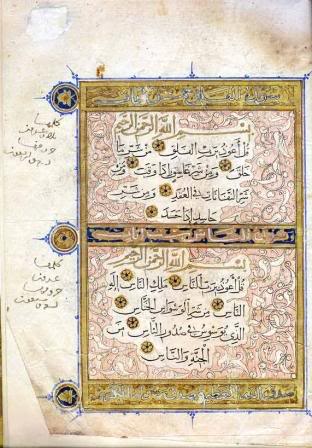 سورة الفلق خمس آيات
بسم الله الرحمن الرحيم
قل أعوذ برب الفلق من شر ما
خلق ومن شر غاسق إذا وقب ومن
شر النفاثات في العقد ومن شر
حاسد إذا حسد
سورة الناس
بسم الله الرحمن الرحيم
قل أعوذ برب الناس ملك الناس إله
الناس من شر الوسواس الخناس
الذي يوسوس في صدور الناس من
الجنة والناس
صدق الله العظيم